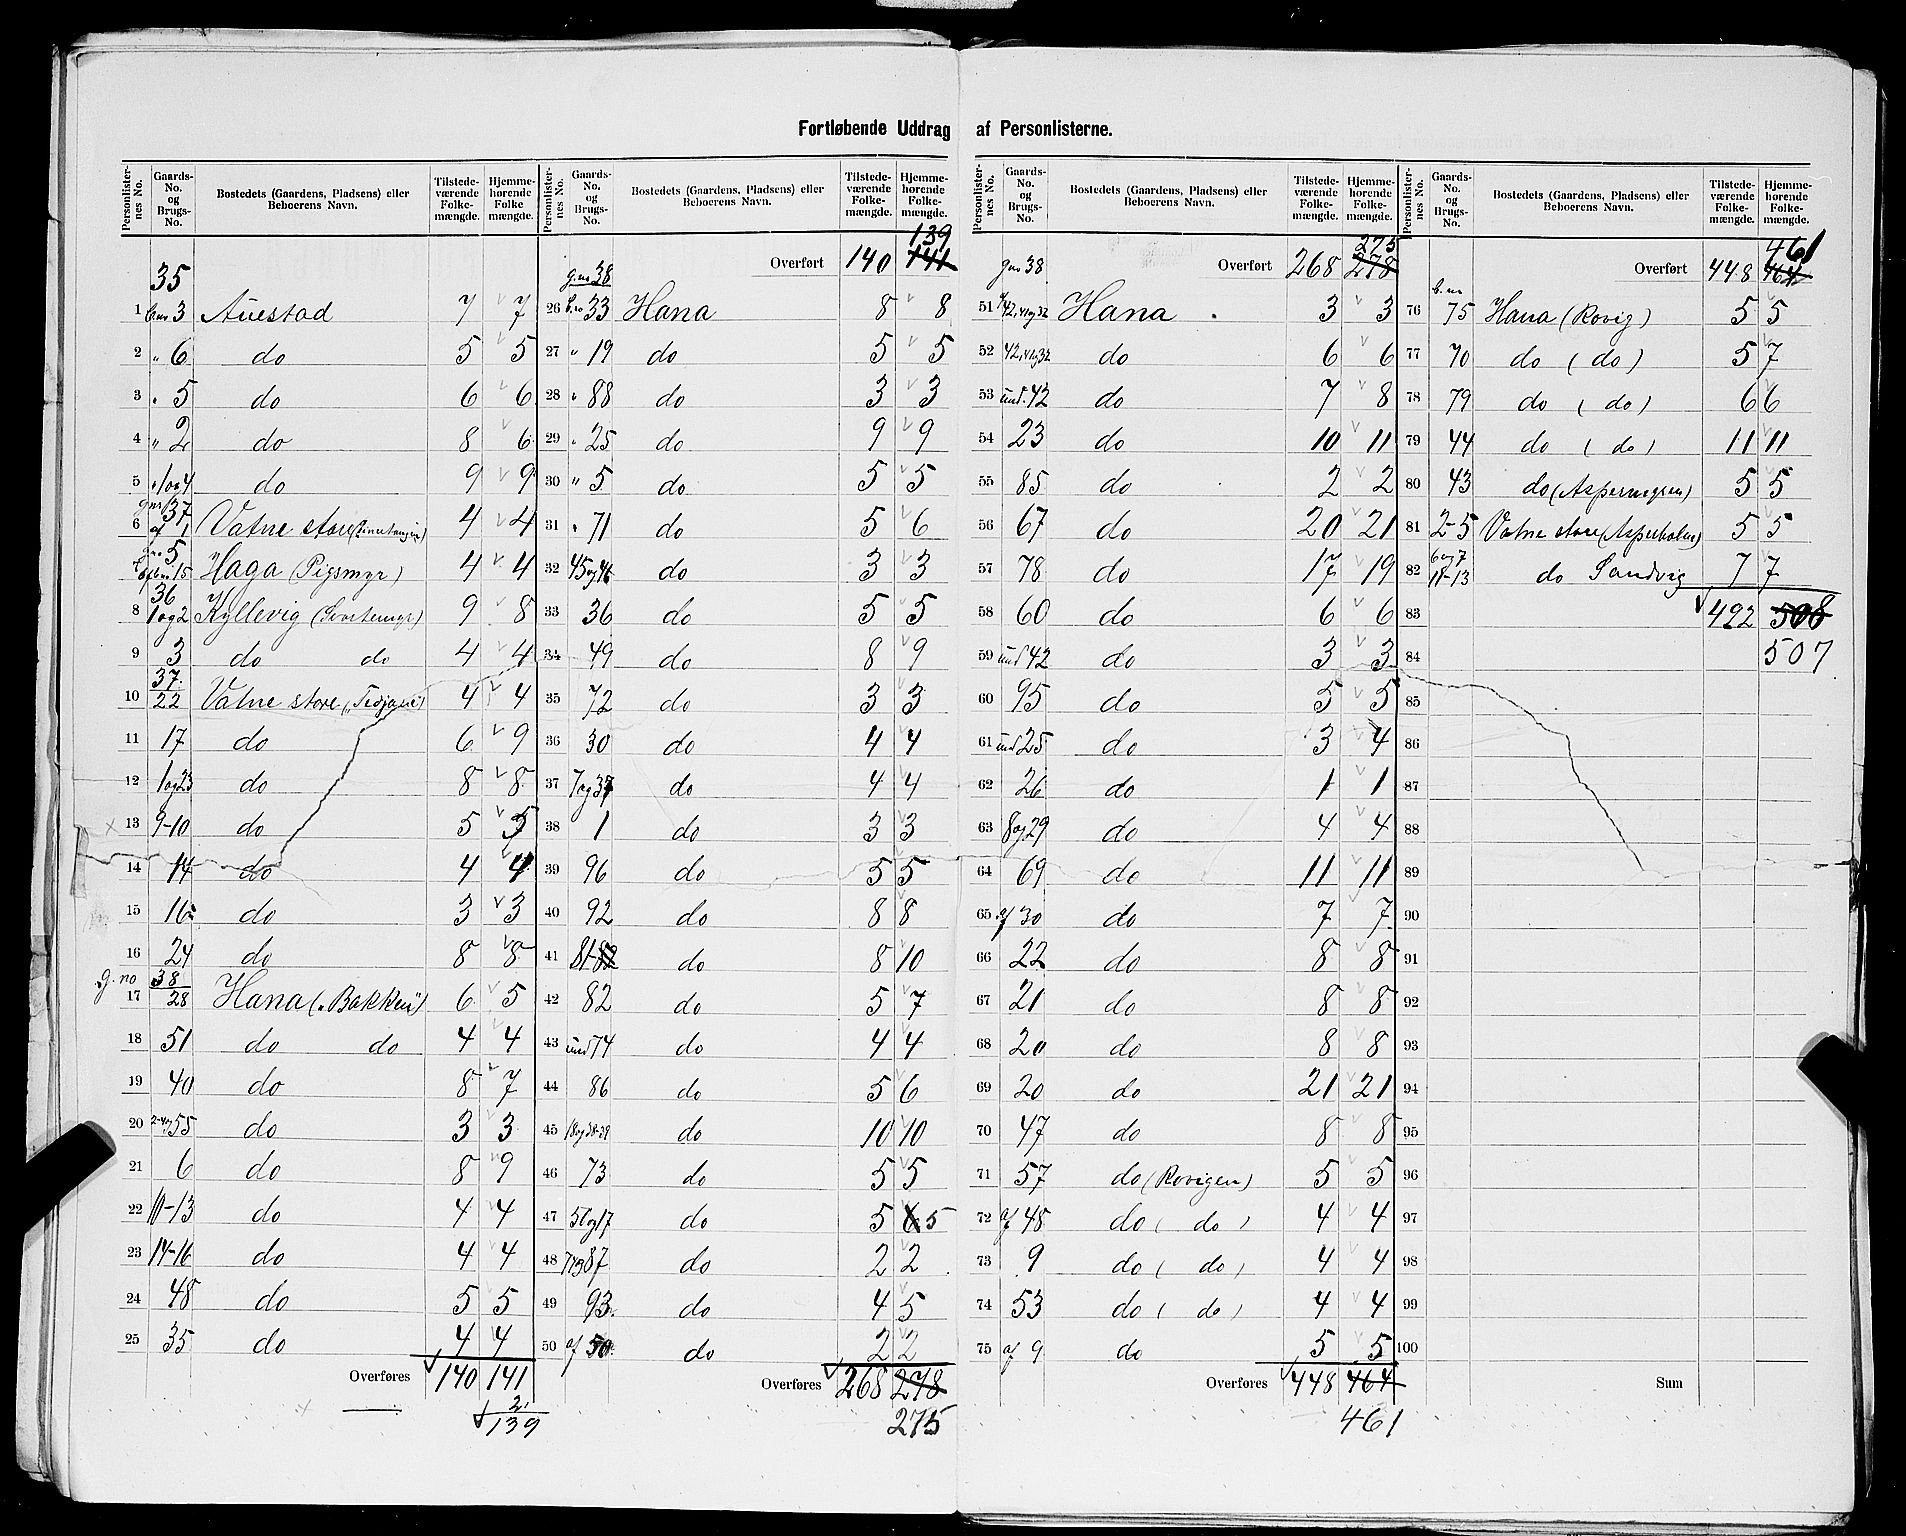 Fortløbende Uddrag af Personlisterne.
Personlister-nes No. | Gaards-No. og Brugs-No. | Bostedets (Gaardens, Pladsens) eller Beboerens Navn. | Tilstede-værende Folke-mængde. | Hjemme-hørende Folke mængde.
35
1 b.no 3 Auestad 7 7
2 " 6 do 5 5
3 " 5 do 6 6
4 " 2 do 8 6
5 " 1 og 4 do 9 9
gnr 37
6 af 1 Vatne store 4 4
gno 5
af bno 15 Haga (Pigsmyr) 4 4
36
8 1 og 2 Kyllevig (Svartemyr) 9 8
9 3 do do 4 4
37
10 22 Vatne store 4 4
11 17 do 6 9
12 1 og 23 do 8 8
13 9-10 do 5 5
14 14 do 4 4
15 16 do 3 3
16 24 do 8 8
g.no 38
17 28 Hana ("Bakken") 6 5
18 51 do do 4 4
19 40 do 8 7
20 2-4 og 55 do 3 3
21 6 do 8 9
22 10-13 do 4 4
23 14-16 do 4 4
24 48 do 5 5
25 35 do 4 4
Overføres 140 141
2
139
Personlister-nes No. | Gaards-No. og Brugs-No. | Bostedets (Gaardens, Pladsens) eller Beboerens Navn. | Tilstede-værende Folke-mængde. | Hjemme-hørende Folke-mængde.
139
g.no 38 Overført 140 141
26 b.no 33 Hana 8 8
27 " 19 do 5 5
28 " 88 do 3 3
29 " 25 do 9 9
30 " 5 do 5 5
31 " 71 do 5 6
32 45 og 46 do 3 3
33 36 do 5 5
34 49 do 8 9
35 72 do 3 3
36 30 do 4 4
37 7 og 37 do 4 4
38 1 do 3 3
39 96 do 5 5
40 92 do 8 8
41 81-82 do 8 10
42 82 do 5 7
43 und 74 do 4 4
44 86 do 5 6
45 18 og 38-39 do 10 10
46 73 do 5 5
47 56 og 17 do 5 6 5
48 87 do 2 2
49 93 do 4 5
50 af 50 do 2 2
Overføres 268 278
275
Personlister-nes No. | Gaards-No. og Brugs-No. | Bostedets (Gaardens, Pladsens) eller Beboerens Navn. | Tilstede-værende Folke-mængde. | Hjemme-hørende Folke-mængde.
275
gno 38 Overført 268 278
51 42, 41 og 32 Hana 3 3
52 42, 41 og 32 do 6 6
53 und. 42 do 7 8
54 23 do 10 11
55 85 do 2 2
56 67 do 20 21
57 78 do 17 19
58 60 do 6 6
59 und 42 do 3 3
60 95 do 5 5
61 und 25 do 3 4
62 26 do 1 1
63 8 og 29 do 4 4
64 69 do 11 11
65 af 30 do 7 7
66 22 do 8 8
67 21 do 8 8
68 20 do 8 8
69 20 do 21 21
70 47 do 8 8
71 57 do (Rovigen) 5 5
72 af 48 do ( do ) 4 4
73 9 do ( do ) 4 4
74 53 do ( do ) 4 4
75 af 9 do 5 5
Overføres 448 464
461
Personlister-nes No. | Gaards-No. og Brugs-No. | Bostedets (Gaardens, Pladsens) eller Beboerens Navn. | Tilstede-værende Folke-mængde. | Hjemme-hørende Folke-mængde.
461
Overført 448 464
b.no
76 75 Hana (Rovig) 5 5
77 70 do ( do ) 5 7
78 79 do ( do ) 6 6
79 44 do ( do ) 11 11
80 43 do 5 5
81 2-5 Vatne store (Asperholen) 5 5
6 og 7
82 11-13 do Sandvig 7 7
83 492 508
84 507
85
86
87
88
89
90
91
92
93
94
95
96
97
98
99
100
Sum